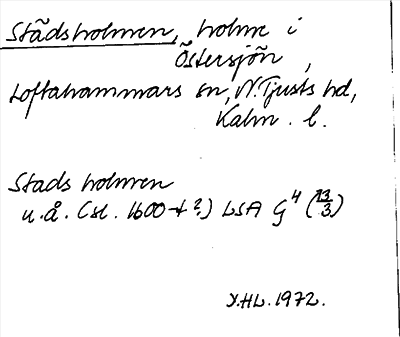 Städsholmen, holme i
Östersjön,
Loftahammars sn, N. Tjusts hd,
Kalm. l.
Stads holmen
u.å. (sl. 1600-t?) LSA G4 (13/3)
Y.HL. 1972.